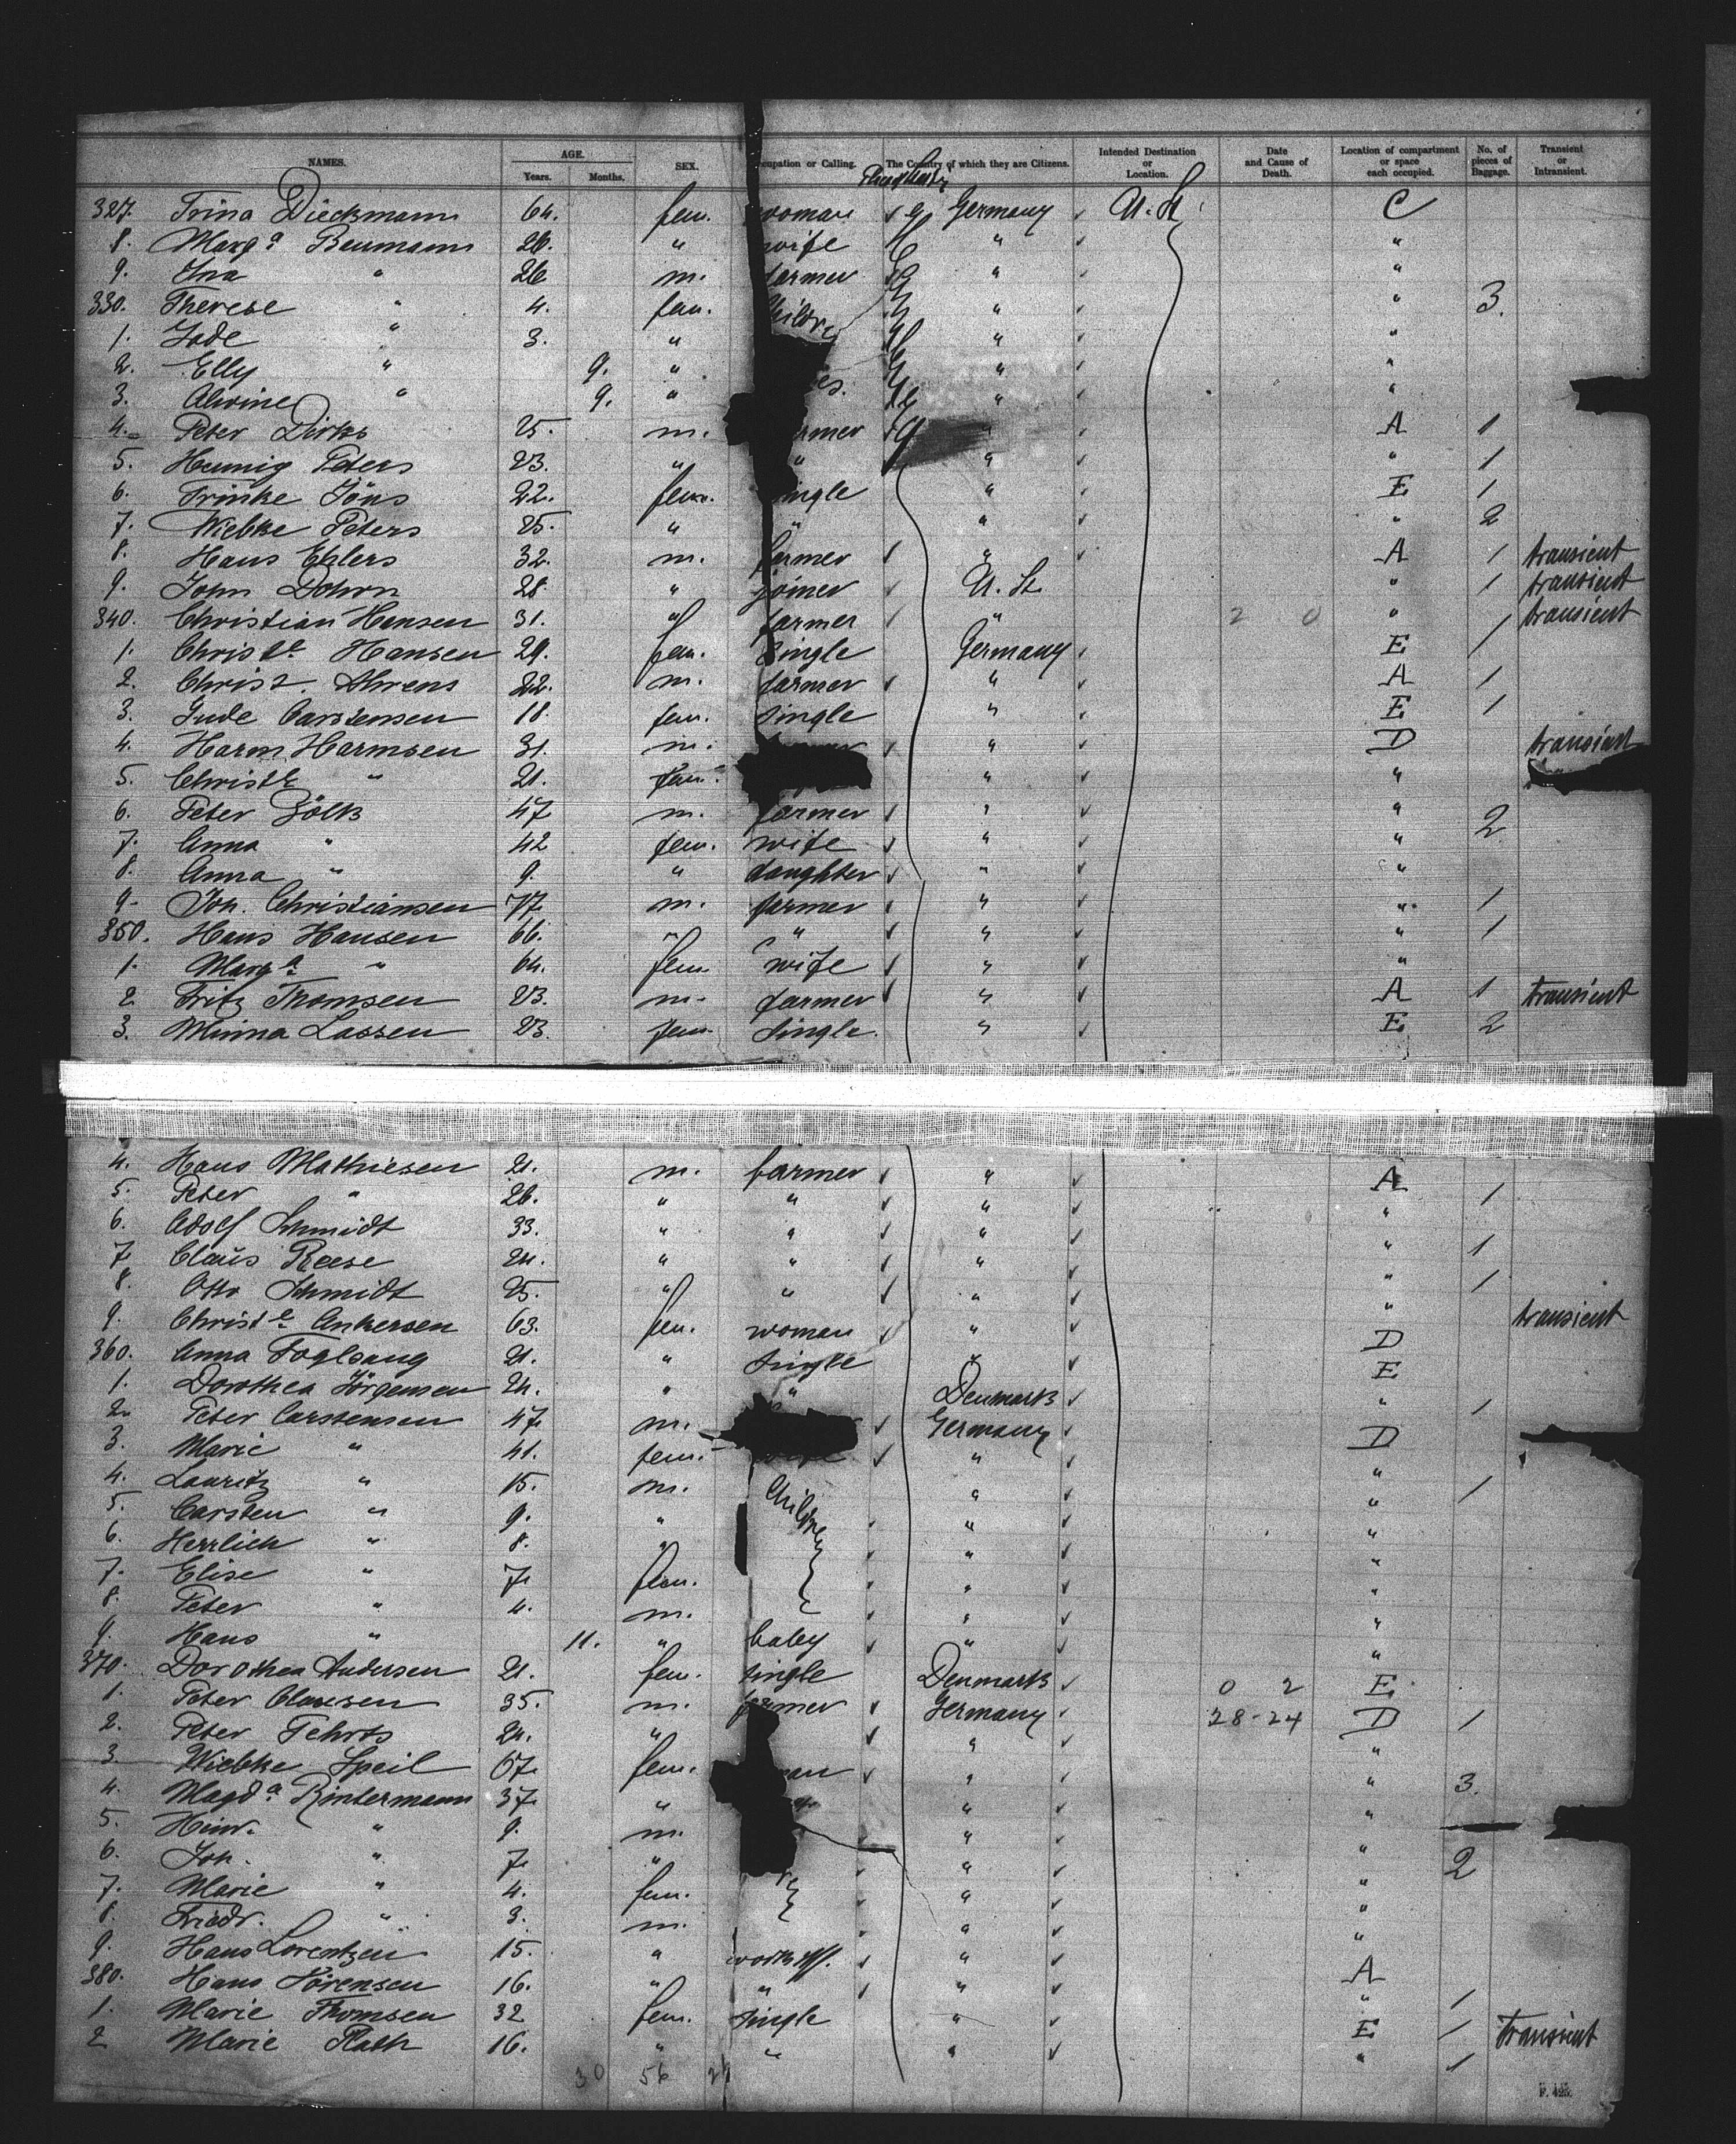 NAMES. AGE. Years. Months. SEX. cupation or Calling. The Country of which they are Citizens. Intended Destination or Location. Date and Cause of Death. Location of compartment or space each occupied. No. of pieces of Baggage. Transient or Intransient.
327. Trina Dieckmann 64. fem. woman Germany U. St. C
8. Marg.a Baumann 26. " wife " "
9. " 26 m. farmer " "
330. Therese " 4. fem. " " 3.
1. " 3. " " "
2. Elly " 9. " " "
3. Alwine " 9. " " "
4. Peter Dirks 25. m. rmer " A 1
5. Hennig Peters 23. " " " " 1
6. Trinke Jöns 22. fem. ingle " E 1
7. Wiebke Peters 25. " " " " 2
8. Hans Ehlers 32. m. farmer " A 1 transient
9. John Dohrn 28. " joiner U. St. " 1 transient
340. Christian Hansen 31. " farmer " 2 0 " transient
1. Christe Hansen 29. fem. single Germany E 1
2. Christ. Ahrens 22. m. farmer " A 1
3. Gude Carstensen 18. fem. single " E 1
4. Harm Harmsen 31. m. " D transient
5. Christe " 21. fem. " "
6. Peter Zölk 47 m. farmer " " 2
7. Anna " 42 fem. wife " "
8. Anna " 9. " daughter " "
9. Joh. Christiansen 77. m. farmer " " 1
350. Hans Hansen 66. " " " " 1
1. Marg.a " 64. fem. wife " "
2. Fritz Thomsen 23. m. farmer " A 1 transient
3. Minna Lassen 23. fem. single " E 2
4. Hans Mathiesen 21. m. farmer " A
5. Peter " 26. " " " " 1
6. Adolf Schmidt 33. " " " "
7. Claus Reese 24. " " " " 1
8. Otto Schmidt 25. " " " " 1
9. Christe Ankersen 63. fem. woman " D transient
360. Anna Foglsang 21. " single " E
1. Dorothea Jörgensen 24. " " Denmark " 1
2. Peter Carstensen 47. m. Germany D
3. Marie " 41. fem. wife " "
4. Lauritz " 15. m. Children " " 1
5. Carsten " 9. " " "
6. Herrlich " 8. " " "
7. Elise " 7. fem. " "
8. Peter " 4. m. " "
9. Hans " 11. " baby " "
370. Dorothea Andersen 21. fem. single Denmark 0 2 E
1. Peter Clausen 35. m. farmer Germany 28-24 D 1
2. Peter 24. " " "
3. Wiebke Speil 67. fem. man " " 3.
4. Magd.a Rintermann 37. " " "
5. Hinr. " 9. m. " "
6. Joh. " 7. " " " 2
7. Marie " 4. fem. " "
8. Friedr. " 3. m. " "
9. Hans Lorentzen 15. " " A
380. Hans Sörensen 16. " " " " 1
1. Marie Thomsen 32 fem. single " E 1 transient
2 Marie Plath 16. " " " " 1
30 56